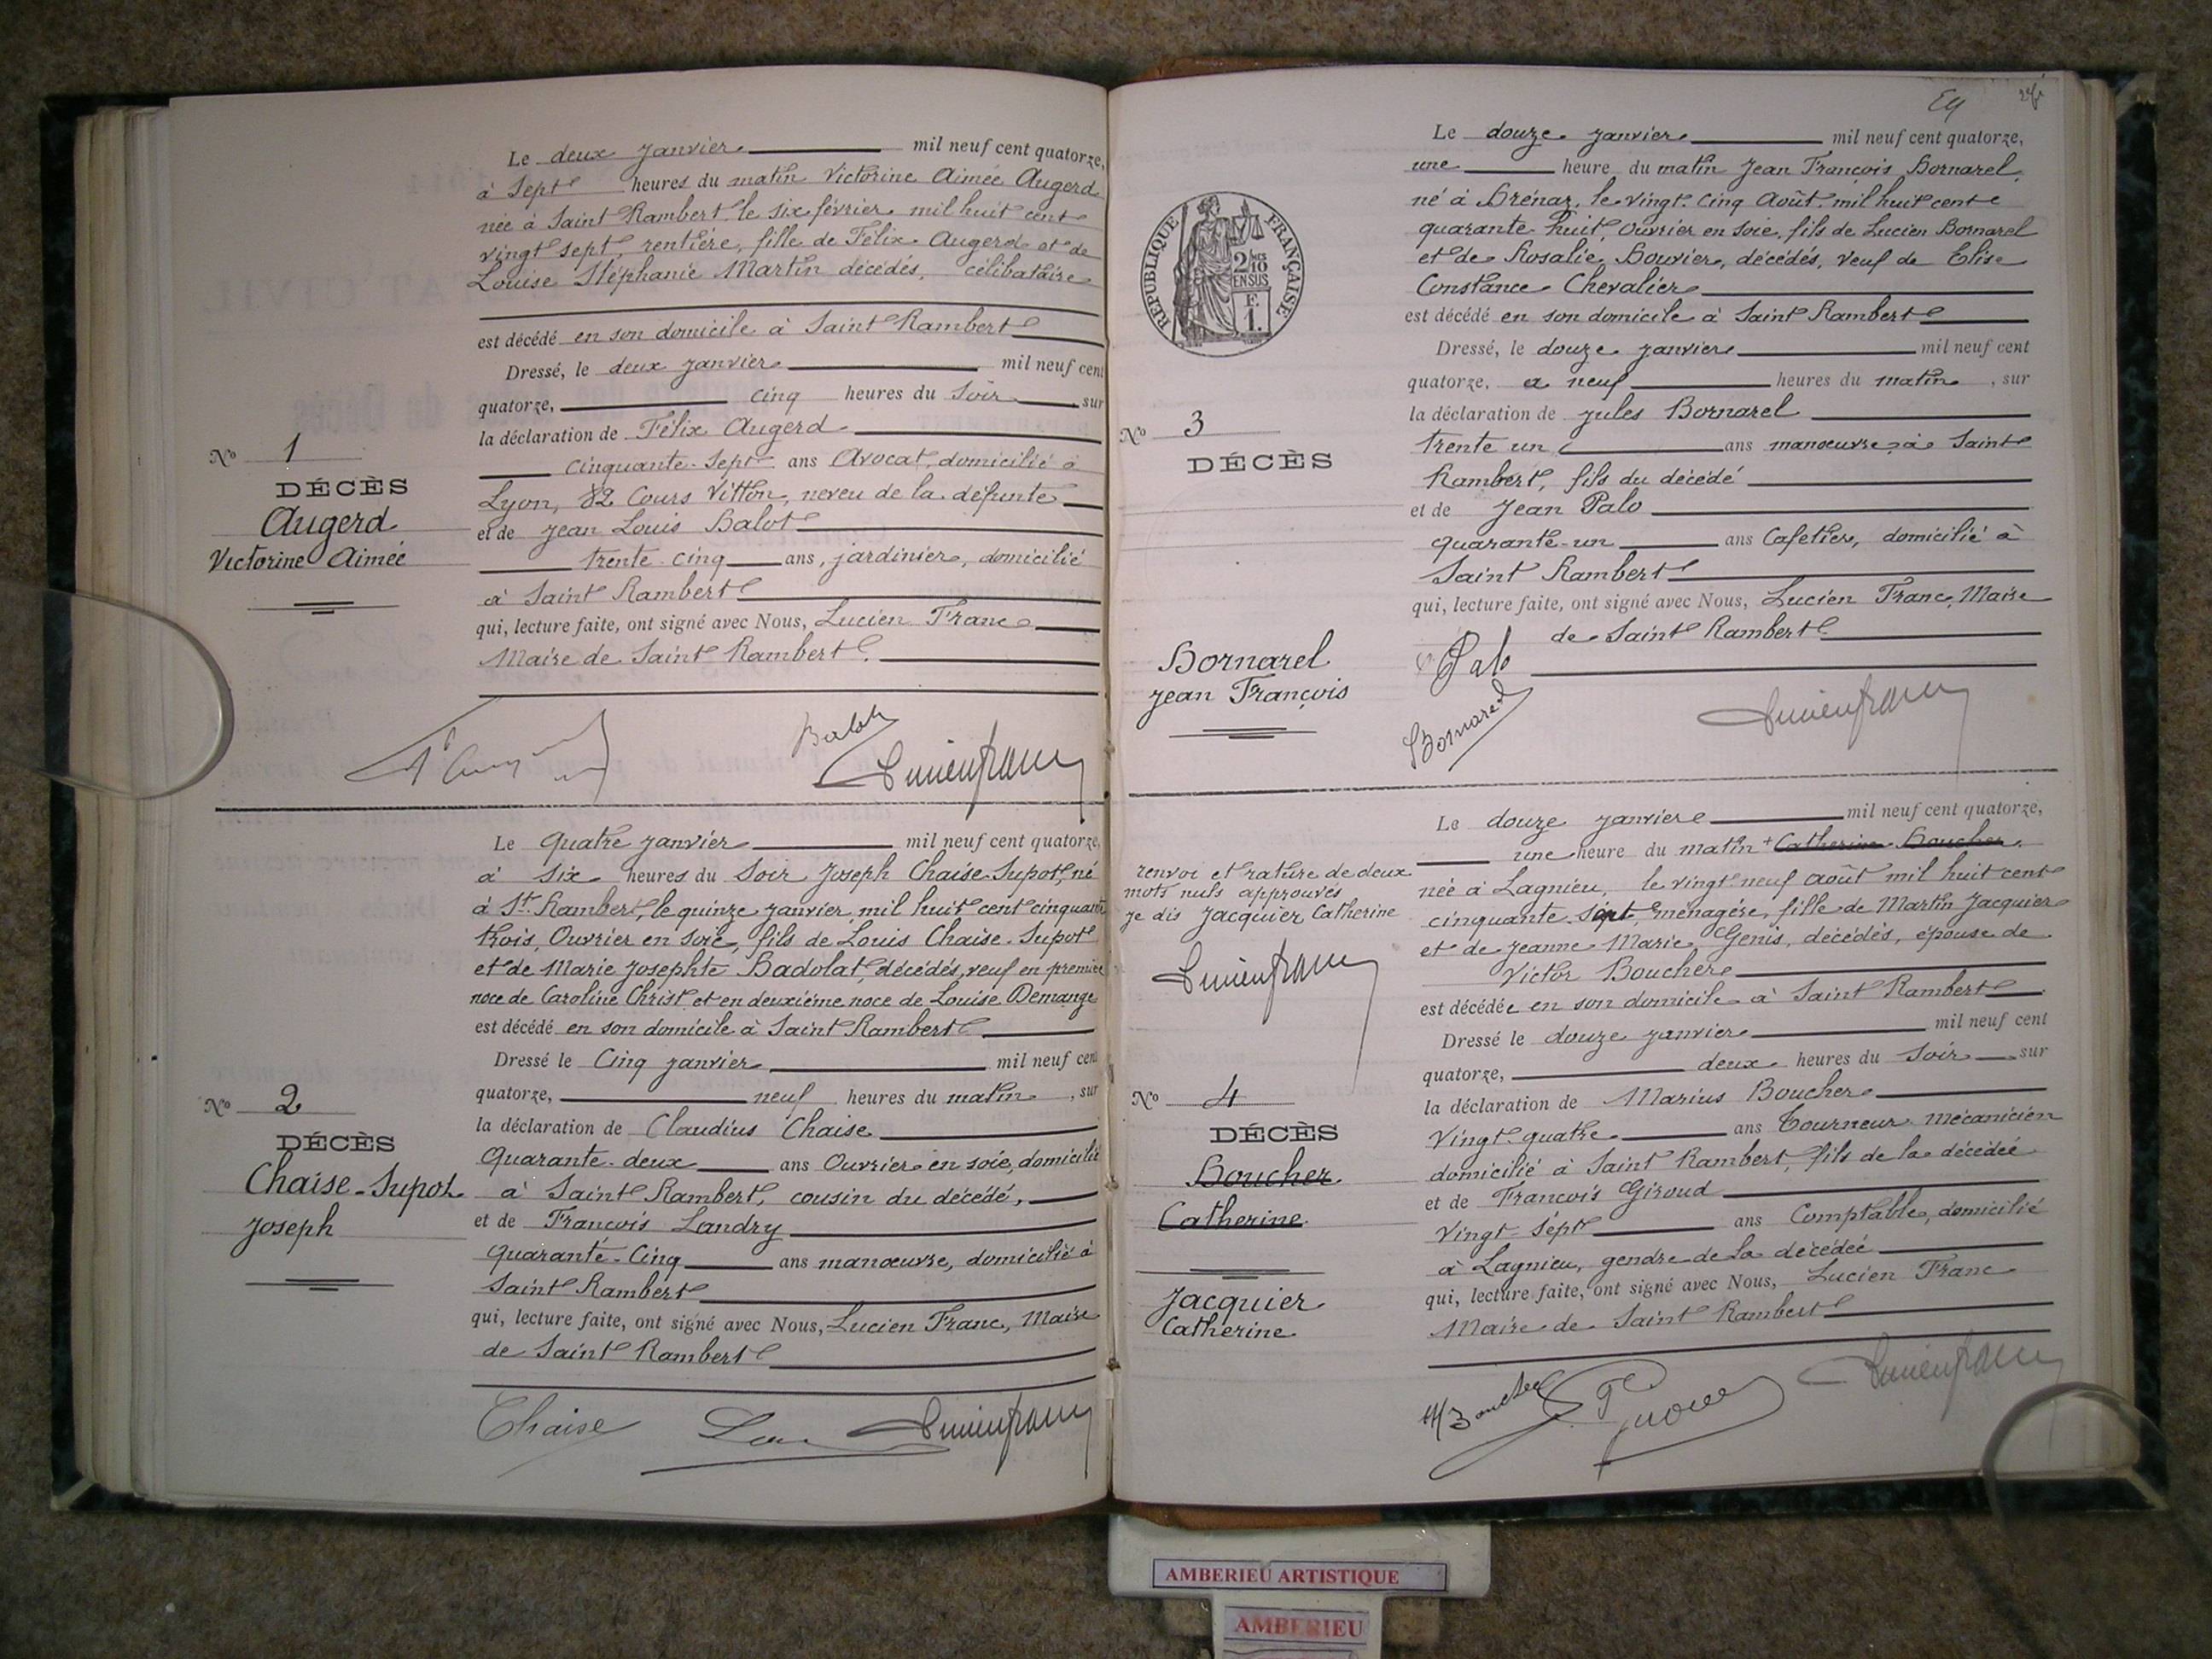 Le deux janvier mil neuf cent quatorze,
à sept heures du matin Victorine Aimée Augerd
née à Saint Rambert le six février mil huit cent
vingt sept, rentière, fille de Félix Augerd et de
Louise Stéphanie Martin décédés, célibataire
est décédé en son domicile à Saint Rambert
Dressé, le deux janvier mil neuf cent
quatorze, cinq heures du soir, sur
la déclaration de Félix Augerd
cinquante-sept ans Avocat, domicilié à
Lyon, 82 Cours Vitton, neveu de la défunte
et de Jean Louis Balot
trente-cinq ans, jardinier, domicilié
à Saint Rambert
qui, lecture faite, ont signé avec Nous, Lucien Franc
Maire de Saint Rambert.
No 1
DÉCÈS
Augerd
Victorine Aimée
Balot
Lucien Franc
Le quatre janvier mil neuf cent quatorze,
à six heures du soir Joseph Chaise-Supot, né
à St. Rambert, le quinze janvier mil huit cent cinquante
trois, Ouvrier en soie, fils de Louis Chaise-Supot
et de Marie Josephte Badolat, décédés, veuf en première
noce de Caroline Christ et en deuxième noce de Louise Demange
est décédé en son domicile à Saint Rambert
Dressé le Cinq janvier mil neuf cent
quatorze, neuf heures du matin, sur
la déclaration de Claudius Chaise
Quarante-deux ans Ouvrier en soie, domicilié
à Saint Rambert, cousin du décédé,
et de François Landry
quarante-cinq ans manœuvre, domicilié à
Saint Rambert
qui, lecture faite, ont signé avec Nous, Lucien Franc, Maire
de Saint Rambert
No 2
DÉCÈS
Chaise-Supot
Joseph
Chaise
Lucien Franc
RÉPUBLIQUE FRANÇAISE
2/10
EN SUS
F.
1.
Le douze janvier mil neuf cent quatorze,
une heure du matin Jean François Bornarel,
né à Brénaz, le vingt-cinq Août mil huit cent
quarante huit, Ouvrier en soie, fils de Lucien Bornarel
et de Rosalie Bouvier, décédés, veuf de Elise
Constance Chevalier
est décédé en son domicile à Saint Rambert
Dressé, le douze janvier mil neuf cent
quatorze, à neuf heures du matin, sur
la déclaration de Jules Bornarel
trente un ans manœuvre à Saint
Rambert, fils du décédé
et de Jean Palo
quarante-un ans Cafetier, domicilié à
Saint Rambert
qui, lecture faite, ont signé avec Nous, Lucien Franc, Maire
de Saint Rambert
No 3
DÉCÈS
Bornarel
Jean François
Palo
Bornarel
Lucien Franc
Le douze janvier mil neuf cent quatorze,
une heure du matin + Catherine Boucher,
née à Lagnieu, le vingt-neuf août mil huit cent
cinquante-sept, ménagère, fille de Martin Jacquier
et de Jeanne Marie Genis, décédés, épouse de
Victor Boucher
est décédée en son domicile à Saint Rambert
Dressé le douze janvier mil neuf cent
quatorze, deux heures du soir sur
la déclaration de Marius Boucher
Vingt-quatre ans Tourneur mécanicien
domicilié à Saint Rambert, fils de la décédée
et de François Giroud
Vingt-sept ans Comptable, domicilié
à Lagnieu, gendre de la décédée
qui, lecture faite, ont signé avec Nous, Lucien Franc
Maire de Saint Rambert
renvoi et rature de deux
mots nuls approuvés
je dis Jacquier Catherine
Lucien Franc
No 4
DÉCÈS
Boucher
Catherine
Jacquier
Catherine
M Boucher
Lucien Franc
AMBERIEU ARTISTIQUE
AMBERIEU